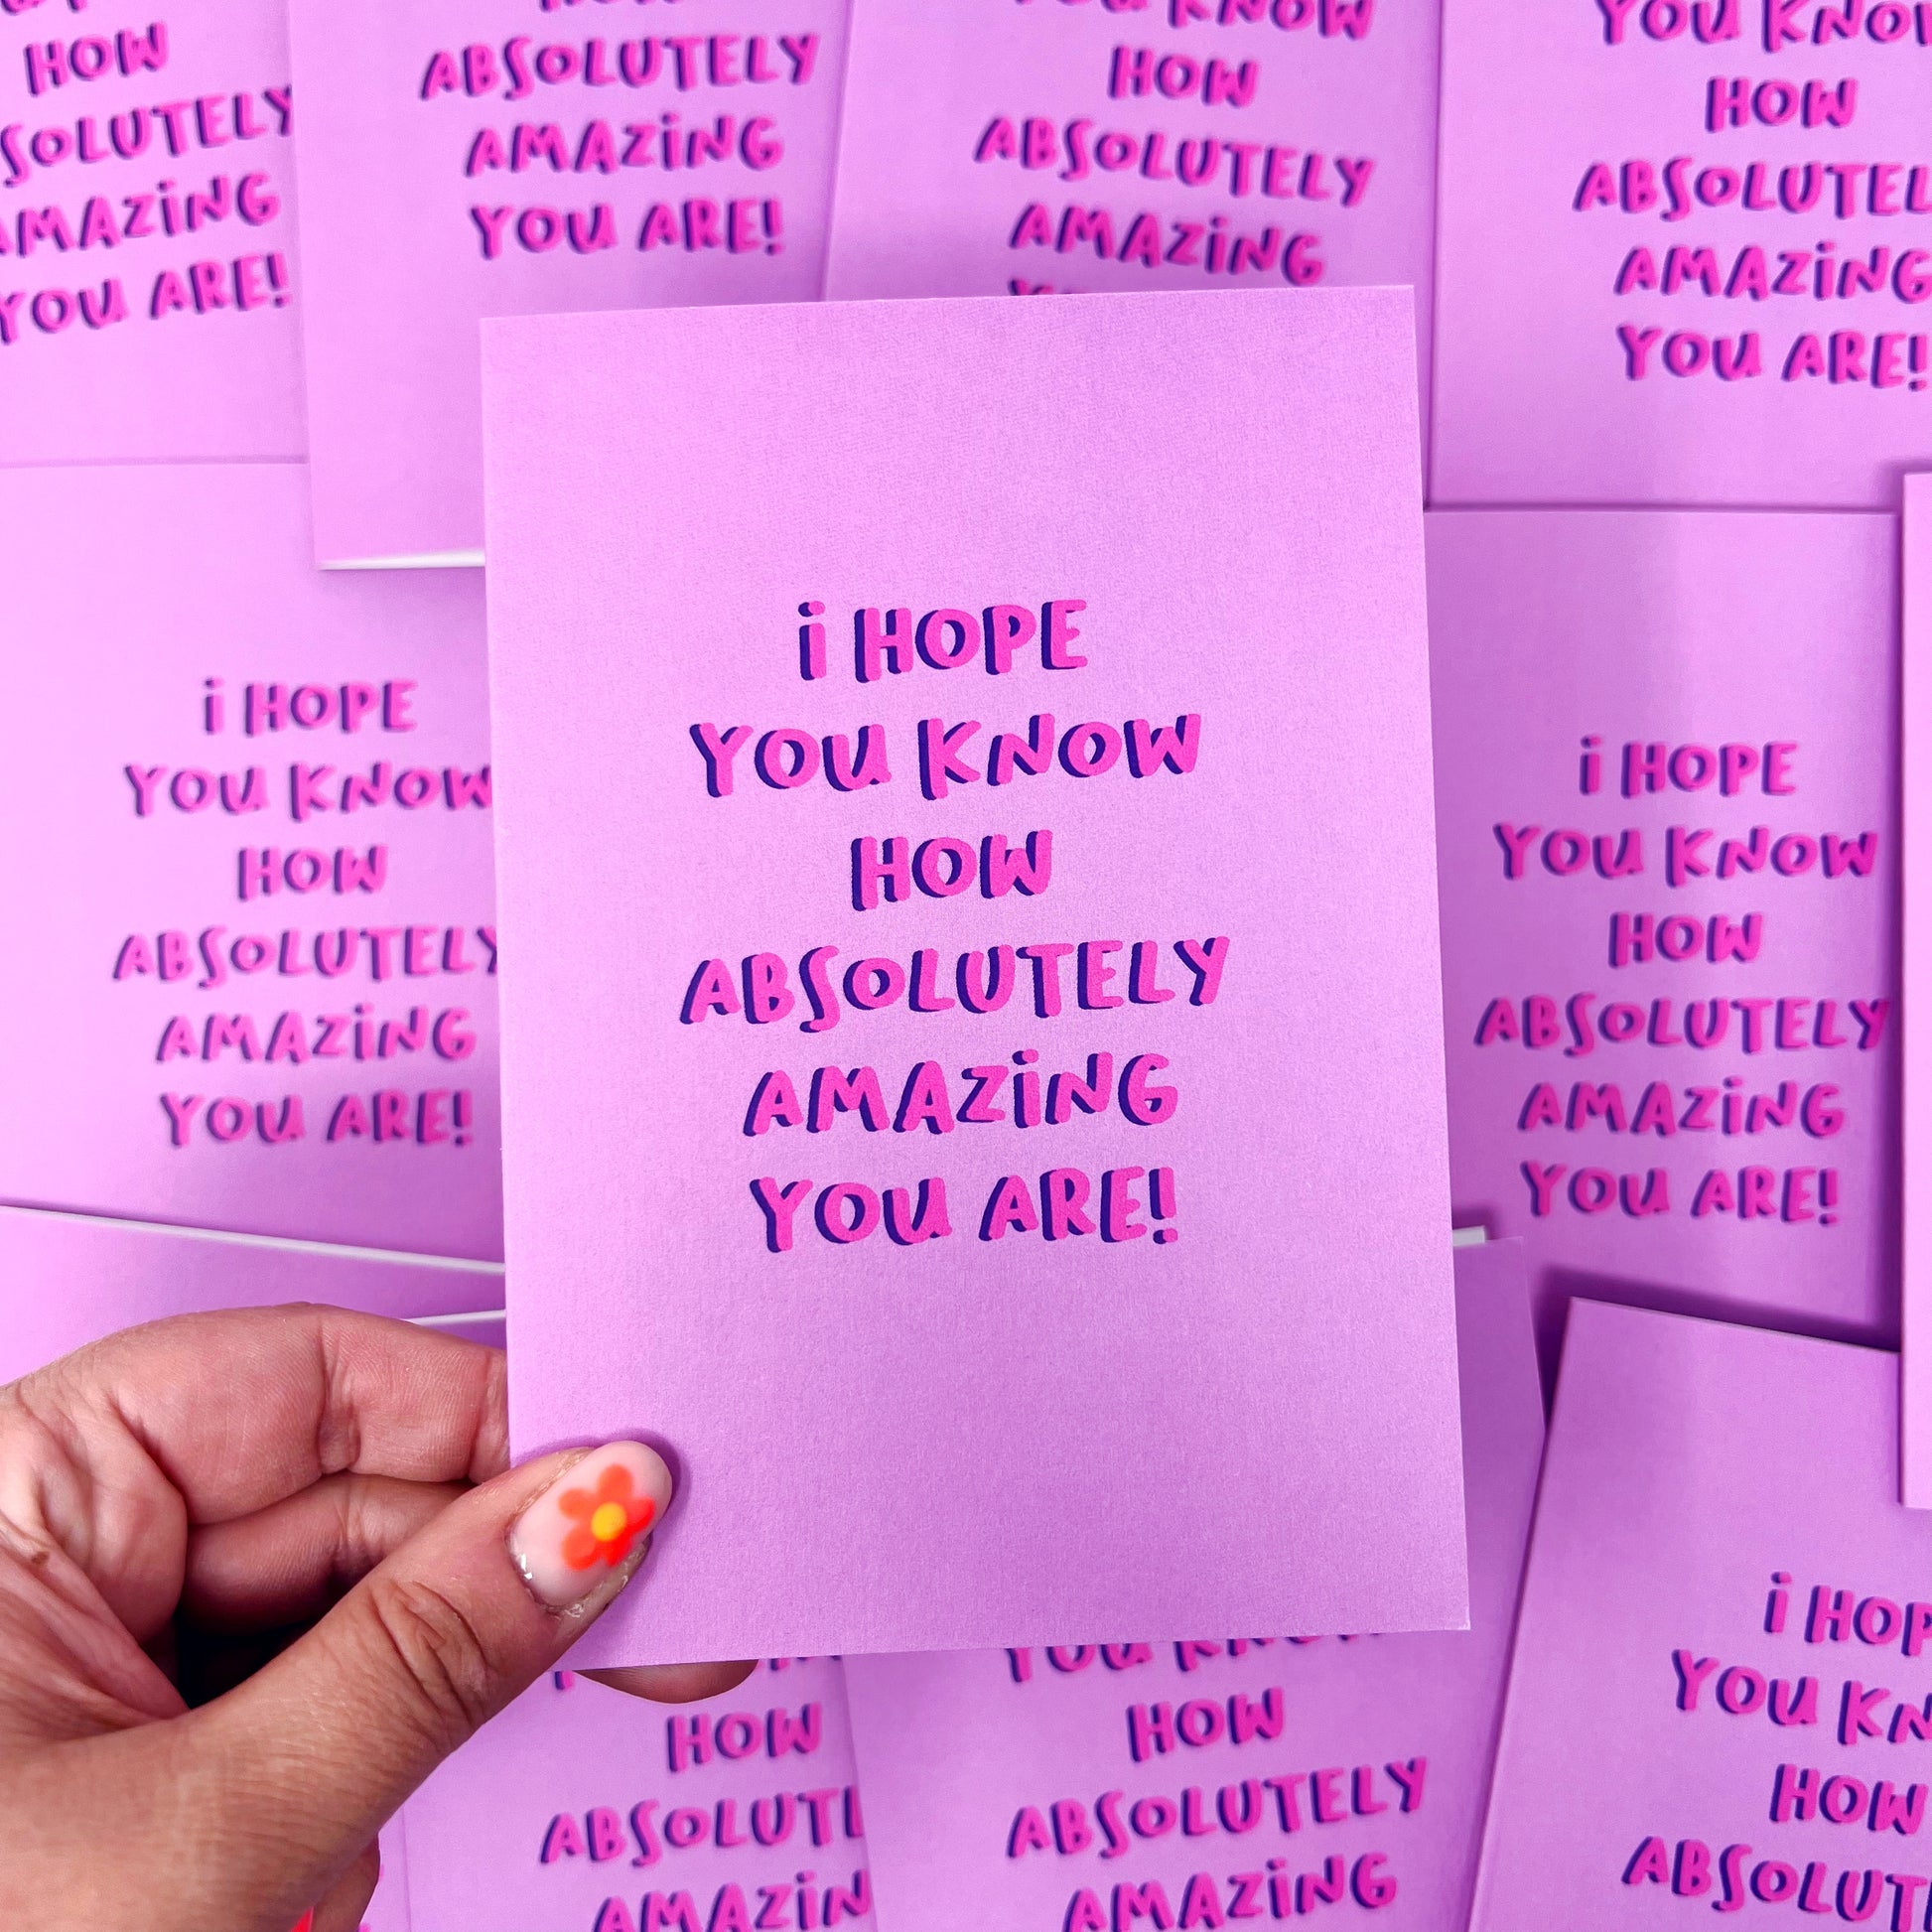 HOW
SOLUTELY
AMAZiNG
YOU ARE!
ABSOLUTELY
AMAZiNG
YOU ARE!
YOU KNOW
HOW
ABSOLUTELY
AMAZiNG
YOU KNOW
HOW
ABSOLUTEL
AMAZiNG
YOU ARE!
i HOPE
YOU KNOW
HOW
ABSOLUTELY
AMAZiNG
YOU ARE!
i HOPE
YOU KNOW
HOW
ABSOLUTELY
AMAZiNG
YOU ARE!
i HOPE
YOU KNOW
HOW
ABSOLUTELY
AMAZiNG
YOU ARE!
HOW
ABSOLUT
AMAZiN
YOU KNOW
HOW
ABSOLUTELY
AMAZiNG
i HOP
YOU KN
HOW
ABSOLUT